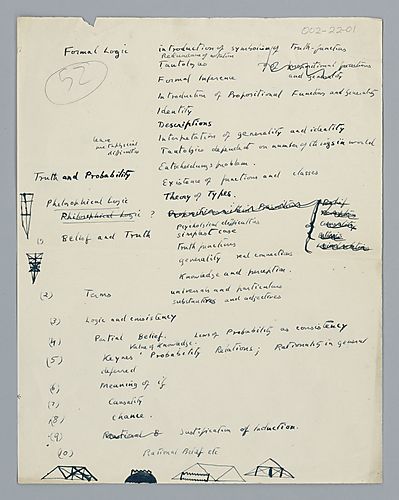 002-22-01
52
Formal Logic introduction of symbolism of truth-functions
Redundance of notation
Tautology propositional functions
and generality
Formal Inference
Introduction of Propositional Functions and generality
Identity
Descriptions
Interpretation of generality and identity
leave
metaphysical
difficulties
Tautologies dependent on number of things in world
Entscheidungsproblem.
Existence of functions and classes
Truth and Probability
Theory of Types.
Philosophical Logic
Philosophical Logic ?
Psychological difficulties
(1) Belief and Truth simplest case
truth functions
generality real connections
Knowledge and perception.
(2) Terms universals and particulars
substantives and adjectives
(3) Logic and consistency
(4) Partial Belief. Laws of Probability as consistency
Value of knowledge.
(5) Keynes' Probability Relations; Rationality in general
deferred
(6) Meaning of if
(7) Causality
(8) Chance.
(9) Justification of Induction.
(10) Rational Belief etc